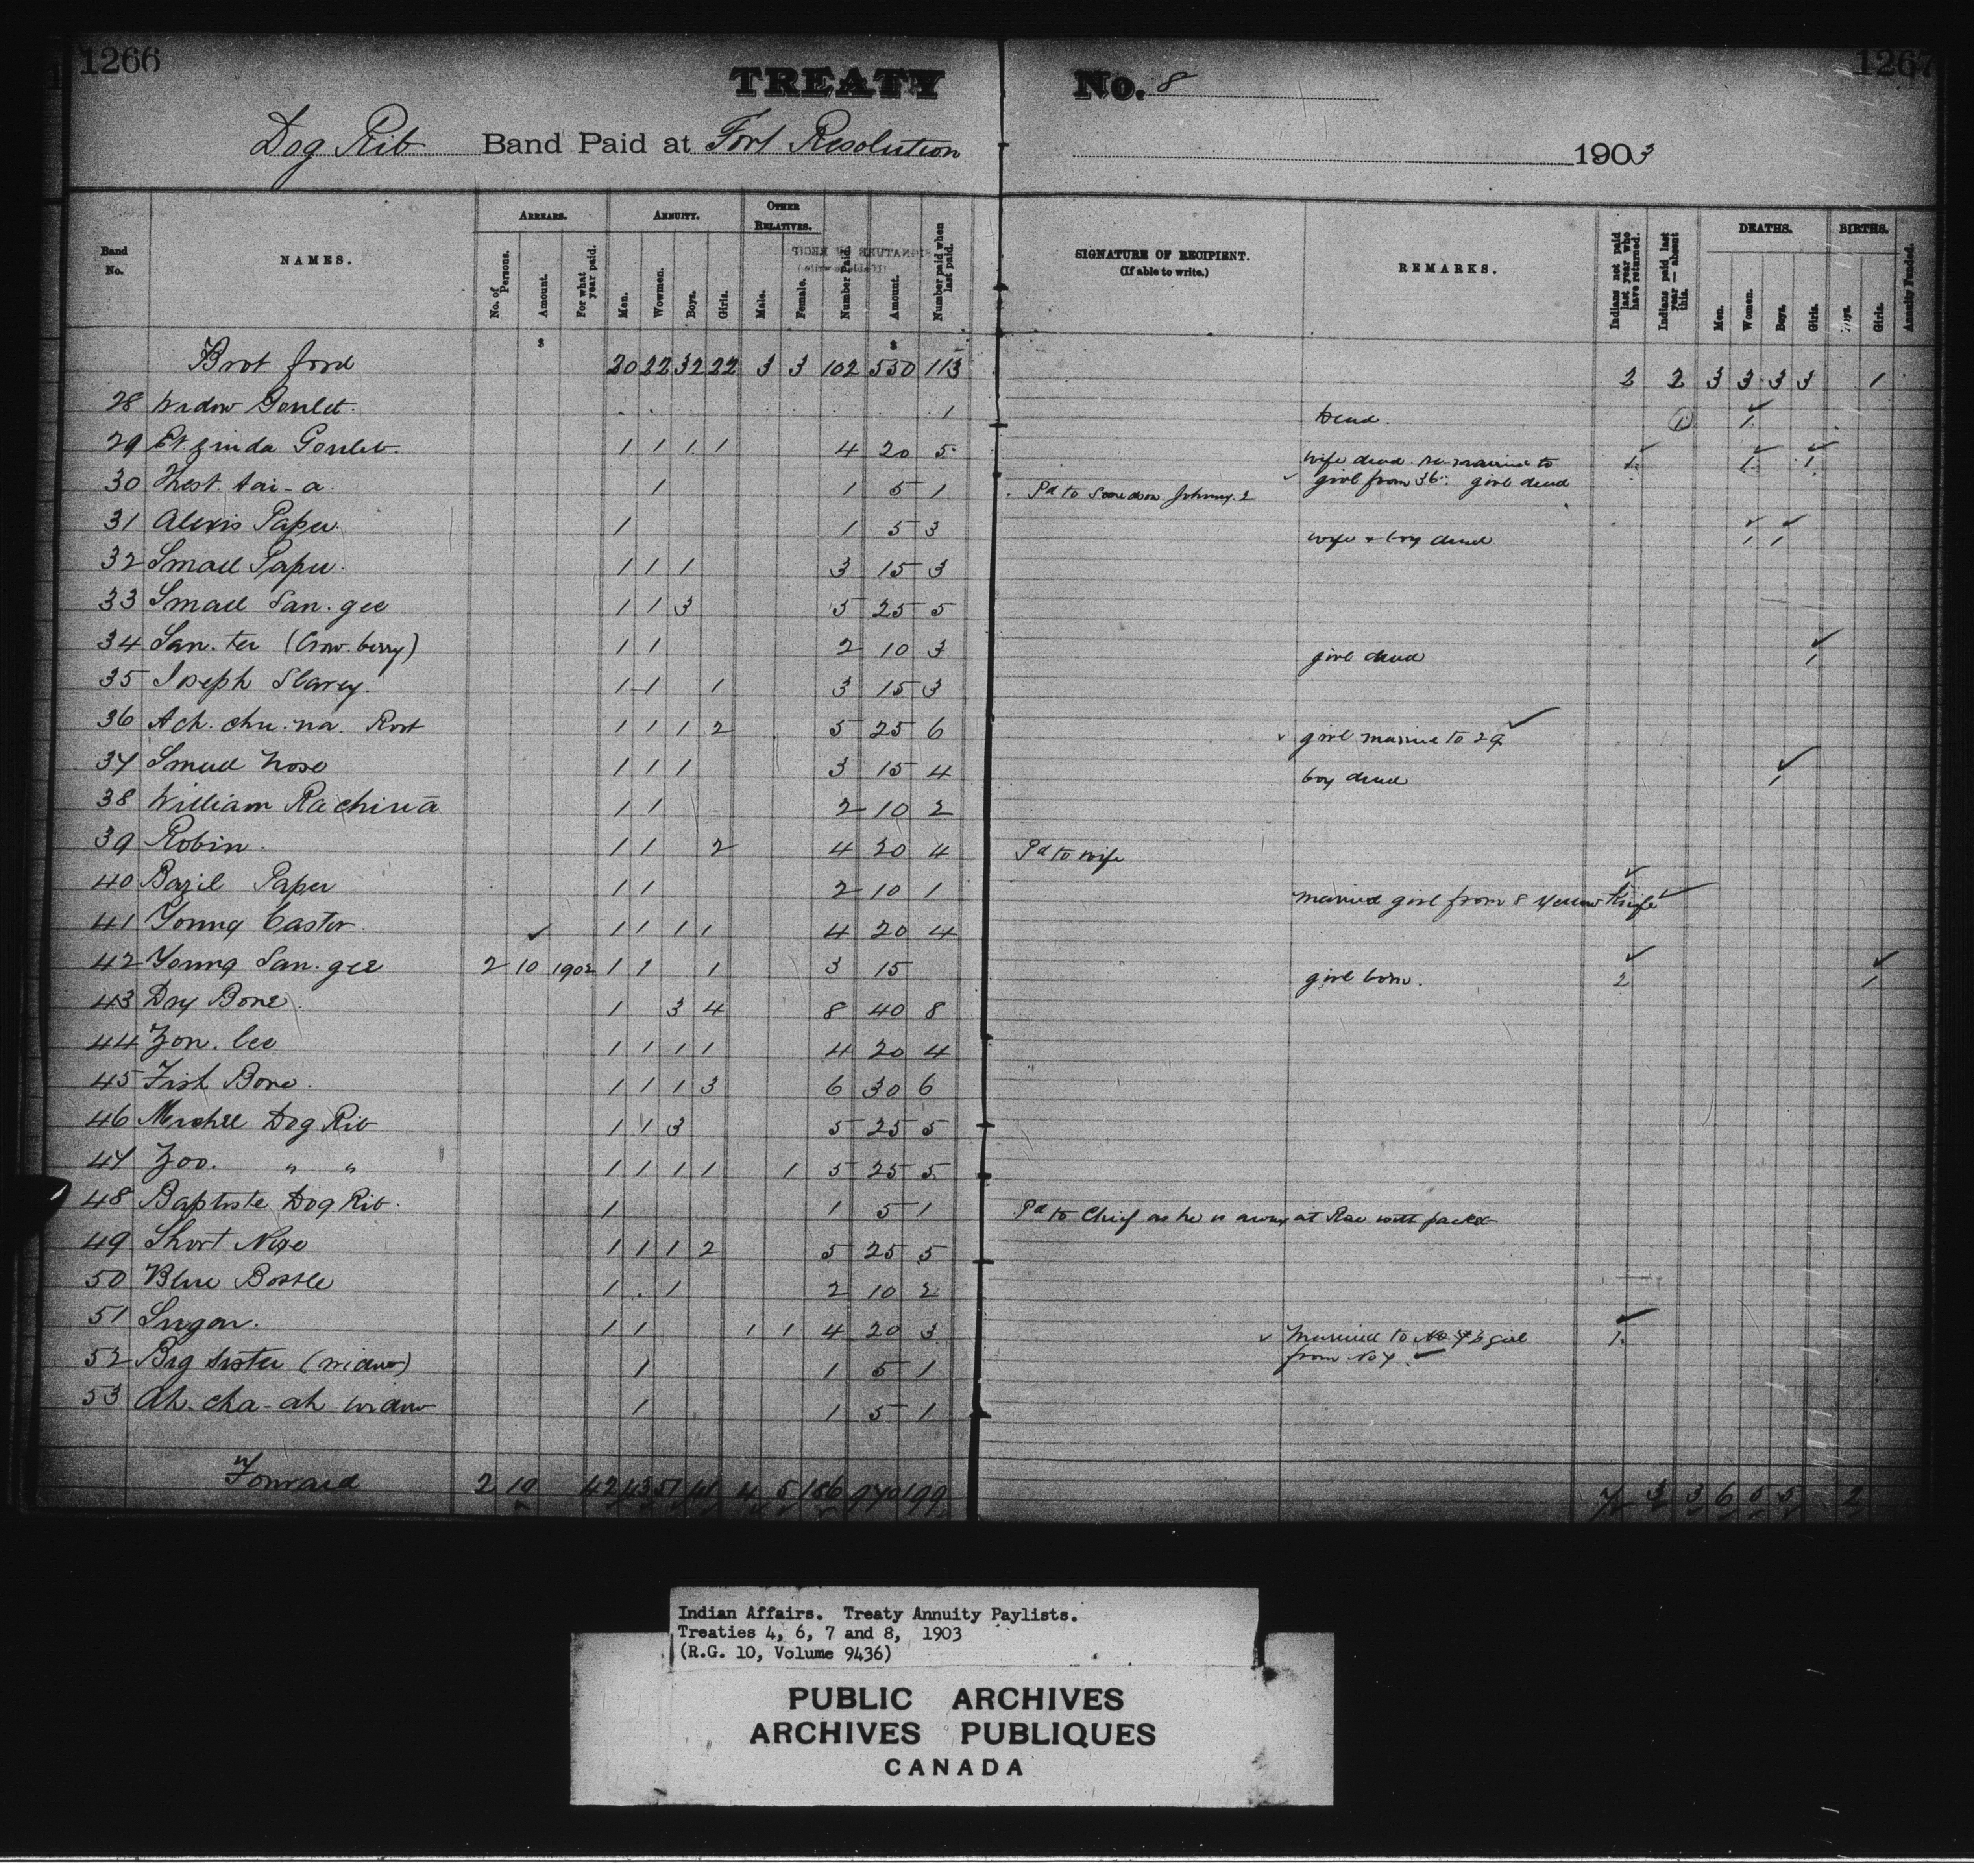 1266 1267
TREATY No. 8
Dog Rib Band Paid at Fort Resolution 1903
Band No. NAMES. ARREARS. No. of Persons. Amount. For what year paid. ANNUITY. Men. Women. Boys. Girls. OTHER RELATIVES. Male. Female. Number Paid. Amount. Number paid when last paid. SIGNATURE OF RECIPIENT. (If able to write.) REMARKS. Indians not paid last year who have returned. Indians paid last year — absent this. DEATHS. Men. Women. Boys. Girls. BIRTHS. Boys. Girls. Annuity Funded.
$ $
Brot ford 20 22 32 22 3 3 102 550 113 2 2 3 3 3 3 1
28 Widow Goulet. 1 Dead. 1 1
29 Goulet. 1 1 1 1 4 20 5 wife dead re-married to 1 1 1
girl from 36. girl dead
30 Thest. tai-a. 1 1 5 1 Pd to Johnny. 2
31 Alexis Paper. 1 1 5 3 wife & boy dead 1 1
32 Small Paper. 1 1 1 3 15 3
33 Small San.gee 1 1 3 5 25 5
34 San.ter (Crow berry) 1 1 2 10 3 girl dead 1
35 Joseph Slavey. 1 1 1 3 15 3
36 Ach.chu.na. 1 1 1 2 5 25 6 girl married to 29
37 Small Nose 1 1 1 3 15 4 boy dead 1
38 William 1 1 2 10 2
39 Robin. 1 1 2 4 20 4 Pd to wife
40 Bazil Paper 1 1 2 10 1 married girl from 8 Yellow Knife 1
41 Young Castor. 1 1 1 1 4 20 4
42 Young San.gee 2 10 1902 1 1 1 3 15 girl born. 2 1
43 Dry Bone. 1 3 4 8 40 8
44 Zon.lee 1 1 1 1 4 20 4
45 Fish Bone. 1 1 1 3 6 30 6
46 Michel Dog Rib 1 1 3 5 25 5
47 Zoo. " " 1 1 1 1 1 5 25 5
48 Baptiste Dog Rib. 1 1 5 1 Pd to Chief as he is away at Rae with packet
49 Short Nose 1 1 1 2 5 25 5
50 Blue Bottle 1 1 2 10 2
51 Sugar. 1 1 1 1 4 20 3 Married to girl 1
from No 7.
52 Big Sister (widow) 1 1 5 1
53 Ah.cha-ah widow 1 1 5 1
Forward 2 10 42 43 51 41 4 5 186 970 199 7 3 3 6 5 5 2
Indian Affairs. Treaty Annuity Paylists.
Treaties 4, 6, 7 and 8, 1903
(R.G. 10, Volume 9436)
PUBLIC ARCHIVES
ARCHIVES PUBLIQUES
CANADA